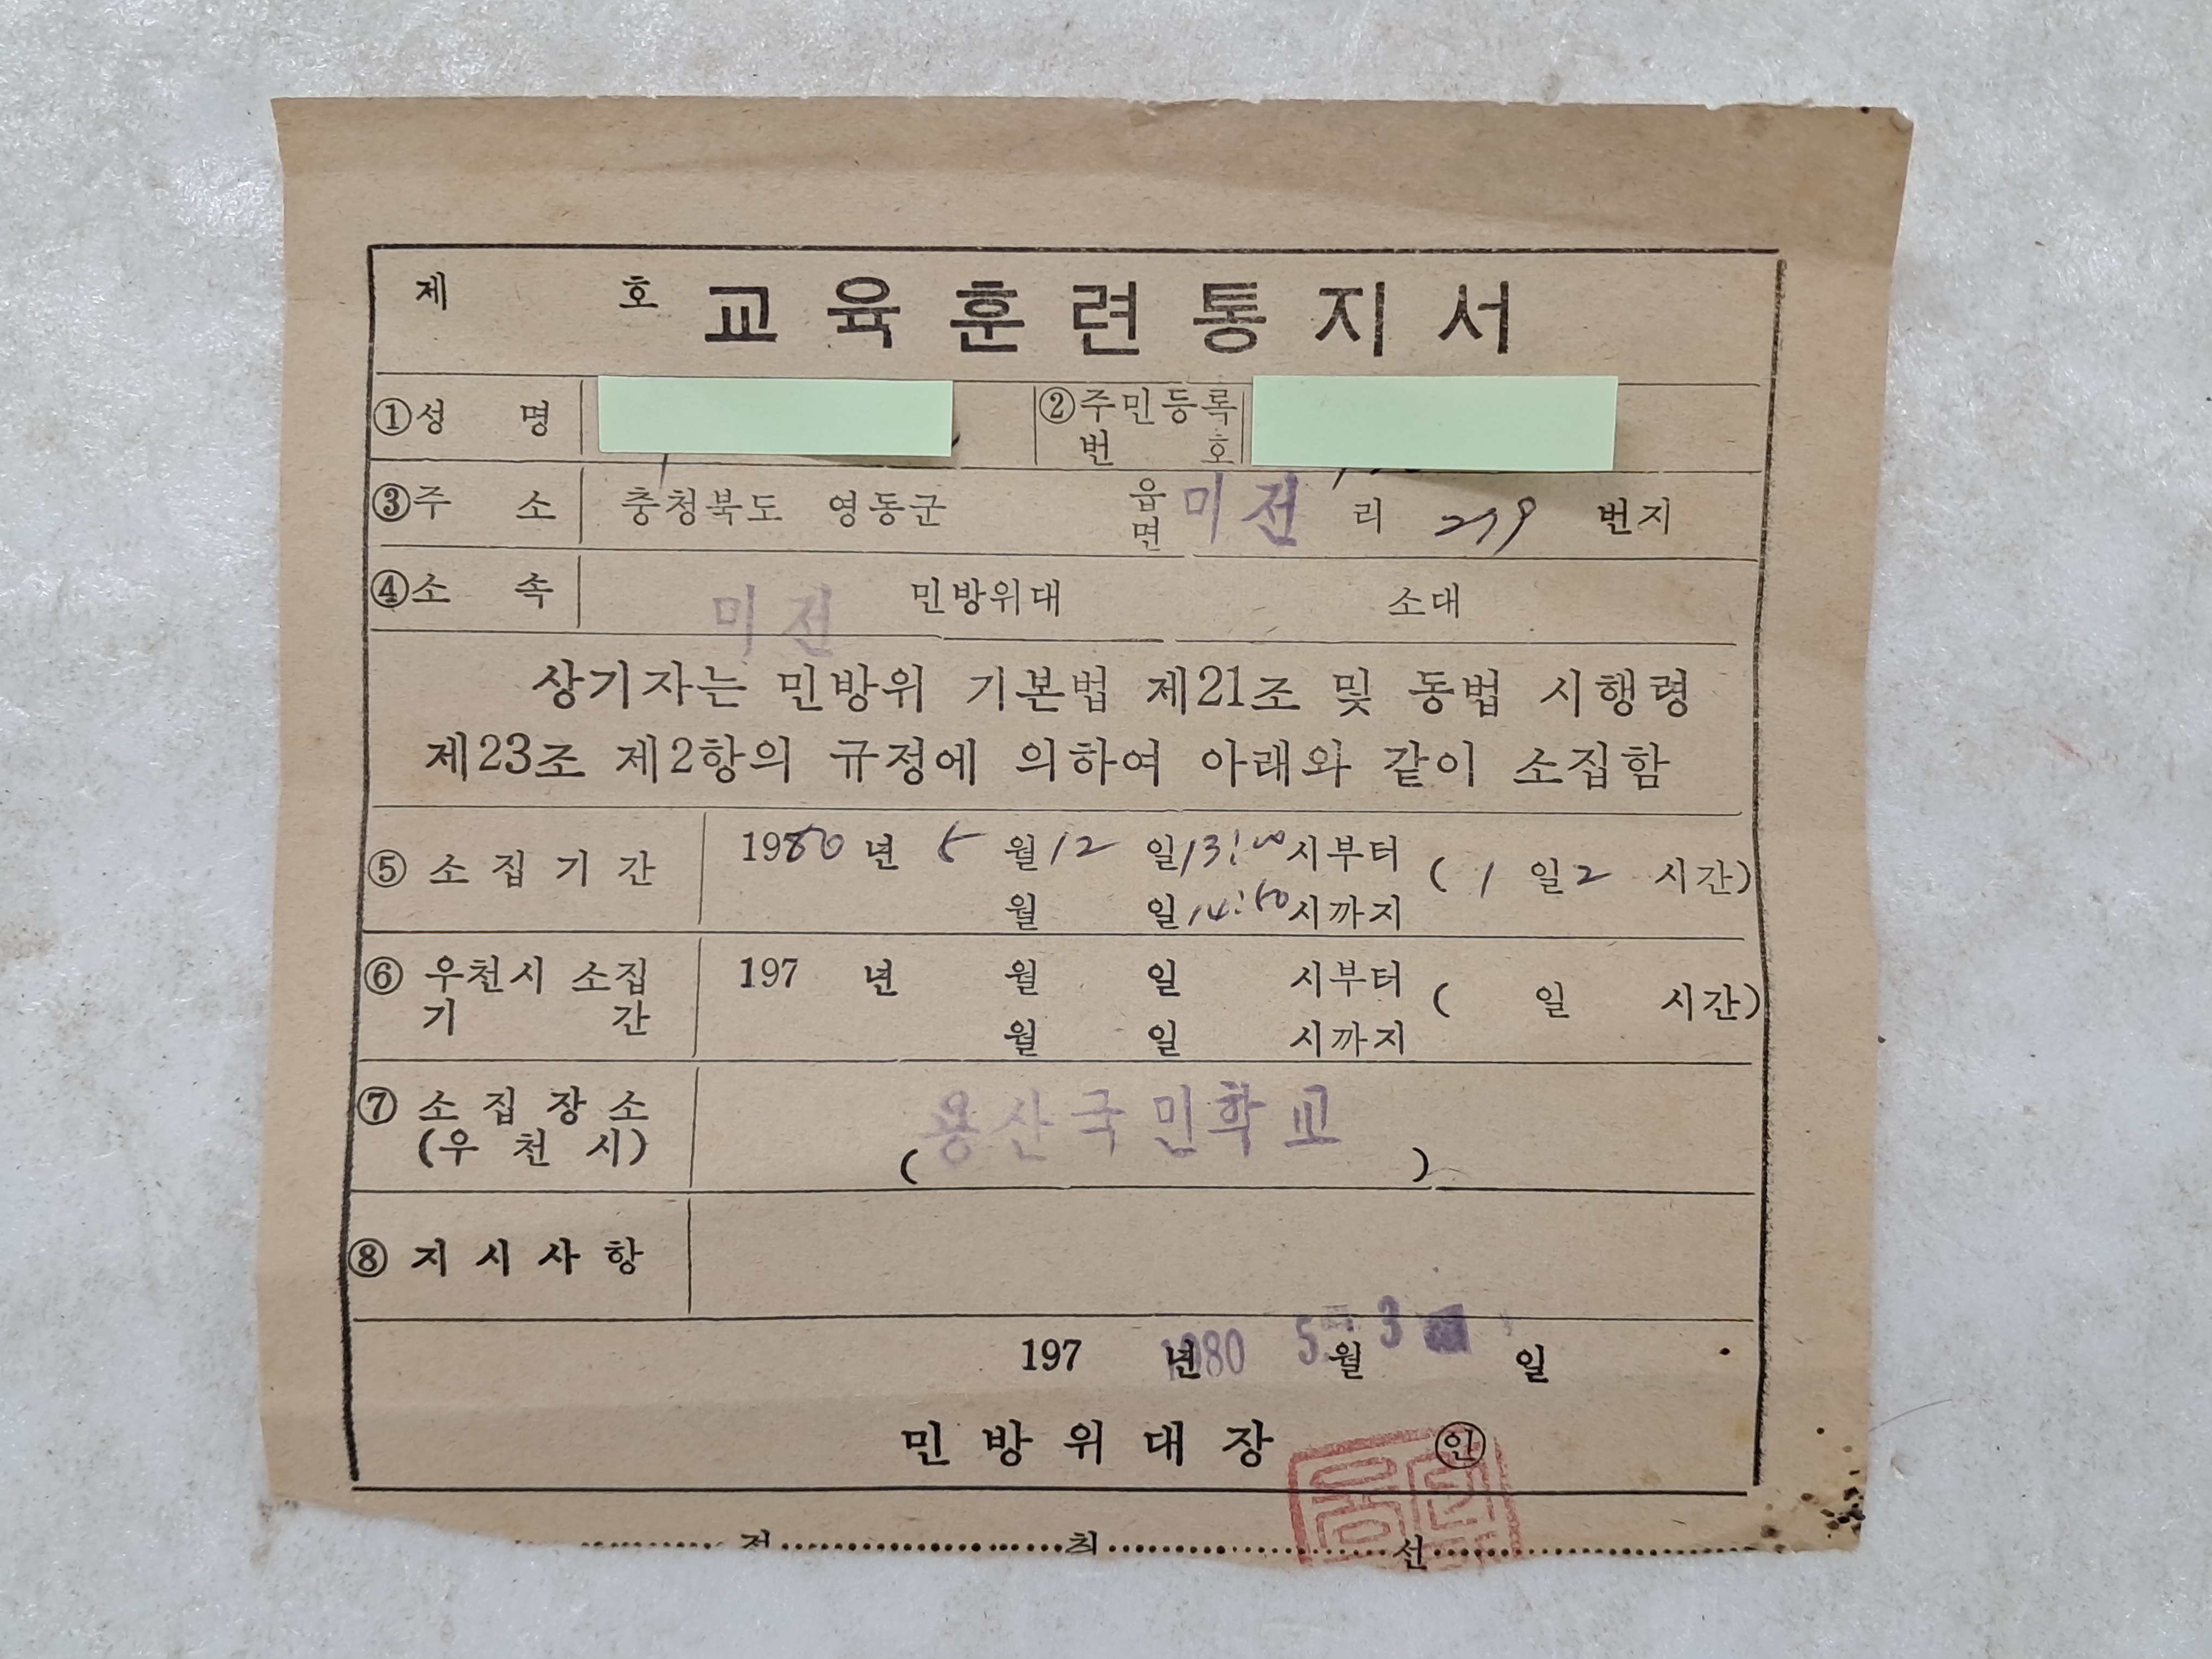 제 호 교육훈련통지서
①성 명 ②주민등록
번 호
③주 소 충청북도 영동군 읍 면 미전 리 219 번지
④소 속 미전 민방위대 소대
상기자는 민방위 기본법 제21조 및 동법 시행령
제23조 제2항의 규정에 의하여 아래와 같이 소집함
⑤ 소집기간 1980년 5월 12일 13:00시부터 (1일 2시간)
월 일 14:50시까지
⑥ 우천시 소집 197 년 월 일 시부터 ( 일 시간)
기 간 월 일 시까지
⑦ 소집장소 용산국민학교
(우 천 시) ( )
⑧ 지시사항
197 년 1980 5 월 3 일
민방위대장 ㊞
절 취 선